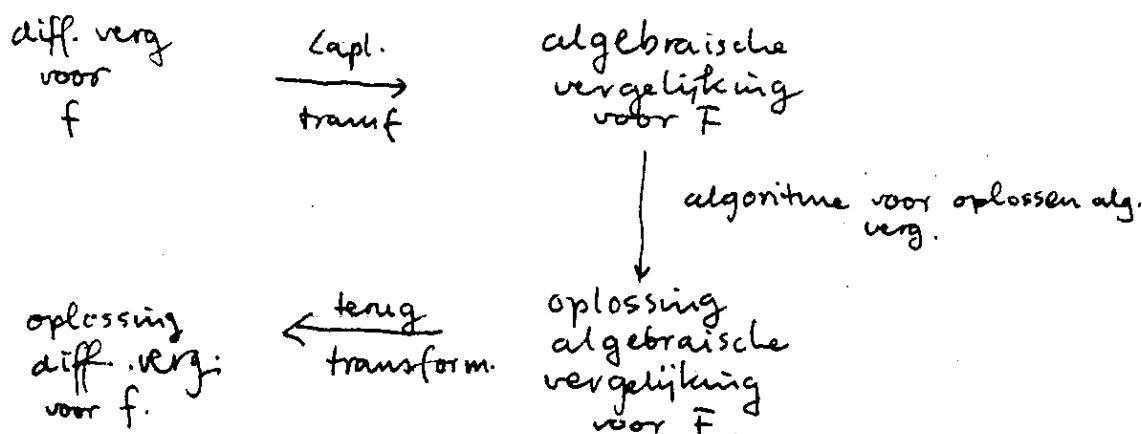 diff. verg
voor
f
Lapl.
transf
algebraische
vergelijking
voor F
algoritme voor oplossen alg.
verg.
oplossing
algebraische
vergelijking
voor F
terug
transform.
oplossing
diff. verg.
voor f.